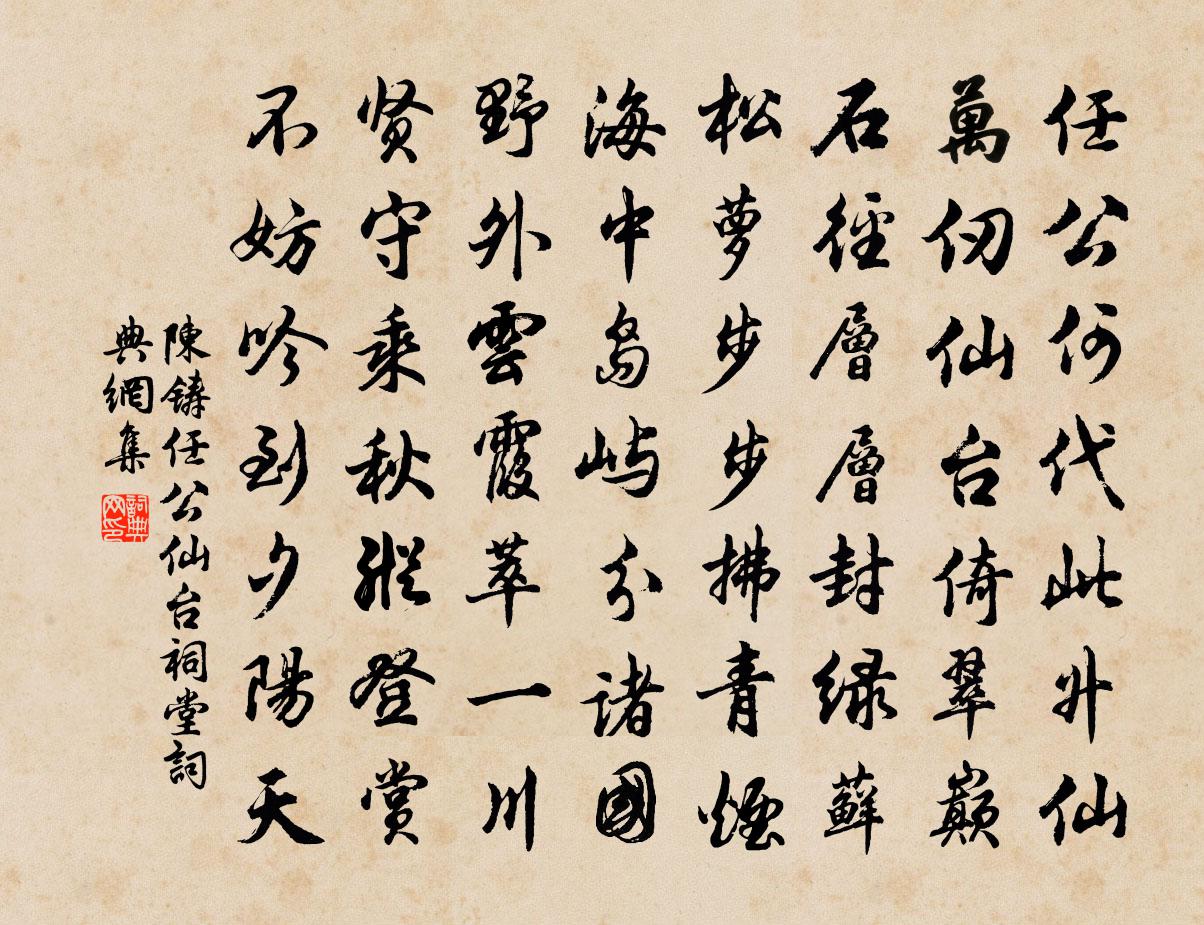 任公何代此升仙
萬仞仙台倚翠巔
石徑層層封绿蘚
松萝步步拂青煙
海中岛屿分諸國
野外雲霞萃一川
贤守乘秋縱登賞
不妨吟到夕陽天
陳鑄任公仙台祠堂詞
典網集
詞典
网印